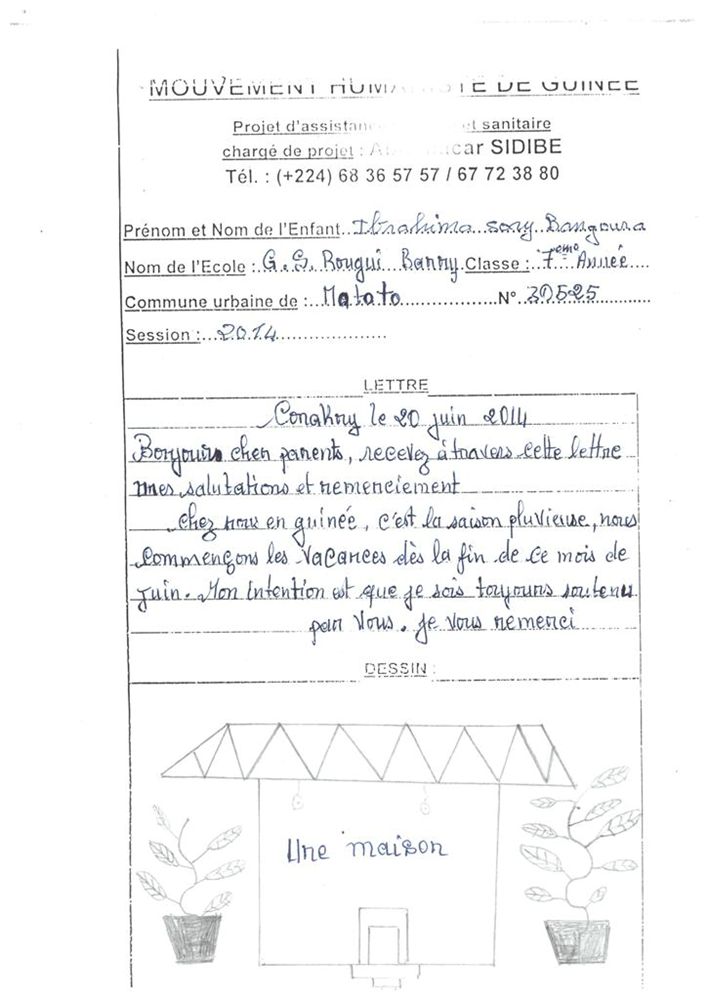 MOUVEMENT HUMANISTE DE GUINEE
Projet d'assistan et sanitaire
chargé de projet : car SIDIBE
Tél. : (+224) 68 36 57 57 / 67 72 38 80
Prénom et Nom de l'Enfant..Ibrahima sory Bangoura
Nom de l'Ecole : G.S. Rougui Barry. Classe : 7eme Année
Commune urbaine de : Matoto N° 30525
Session : 2014
LETTRE
Conakry le 20 juin 2014
Bonjour cher parents, recevez à travers cette lettre
mes salutations et remerciement
chez nou en guinée, c'est la saison pluvieuse, nous
commençons les vacances dès la fin de ce mois de
juin. Mon intention est que je sois toujours soutenu
par vous. je vous remerci
DESSIN :
Une maison